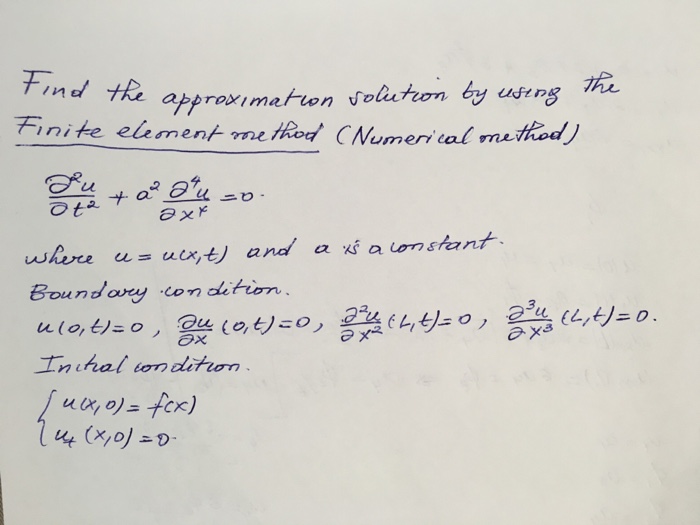 Find the approximation solution by using the
Finite element method (Numerical method)
∂²u/∂t² + a² ∂⁴u/∂x⁴ = 0.
where u = u(x,t) and a is a constant.
Boundary condition.
u(0,t)=0, ∂u/∂x (0,t)=0, ∂²u/∂x² (L,t)=0, ∂³u/∂x³ (L,t)=0.
Initial condition.
{ u(x,0) = f(x)
u_t (x,0) = 0.